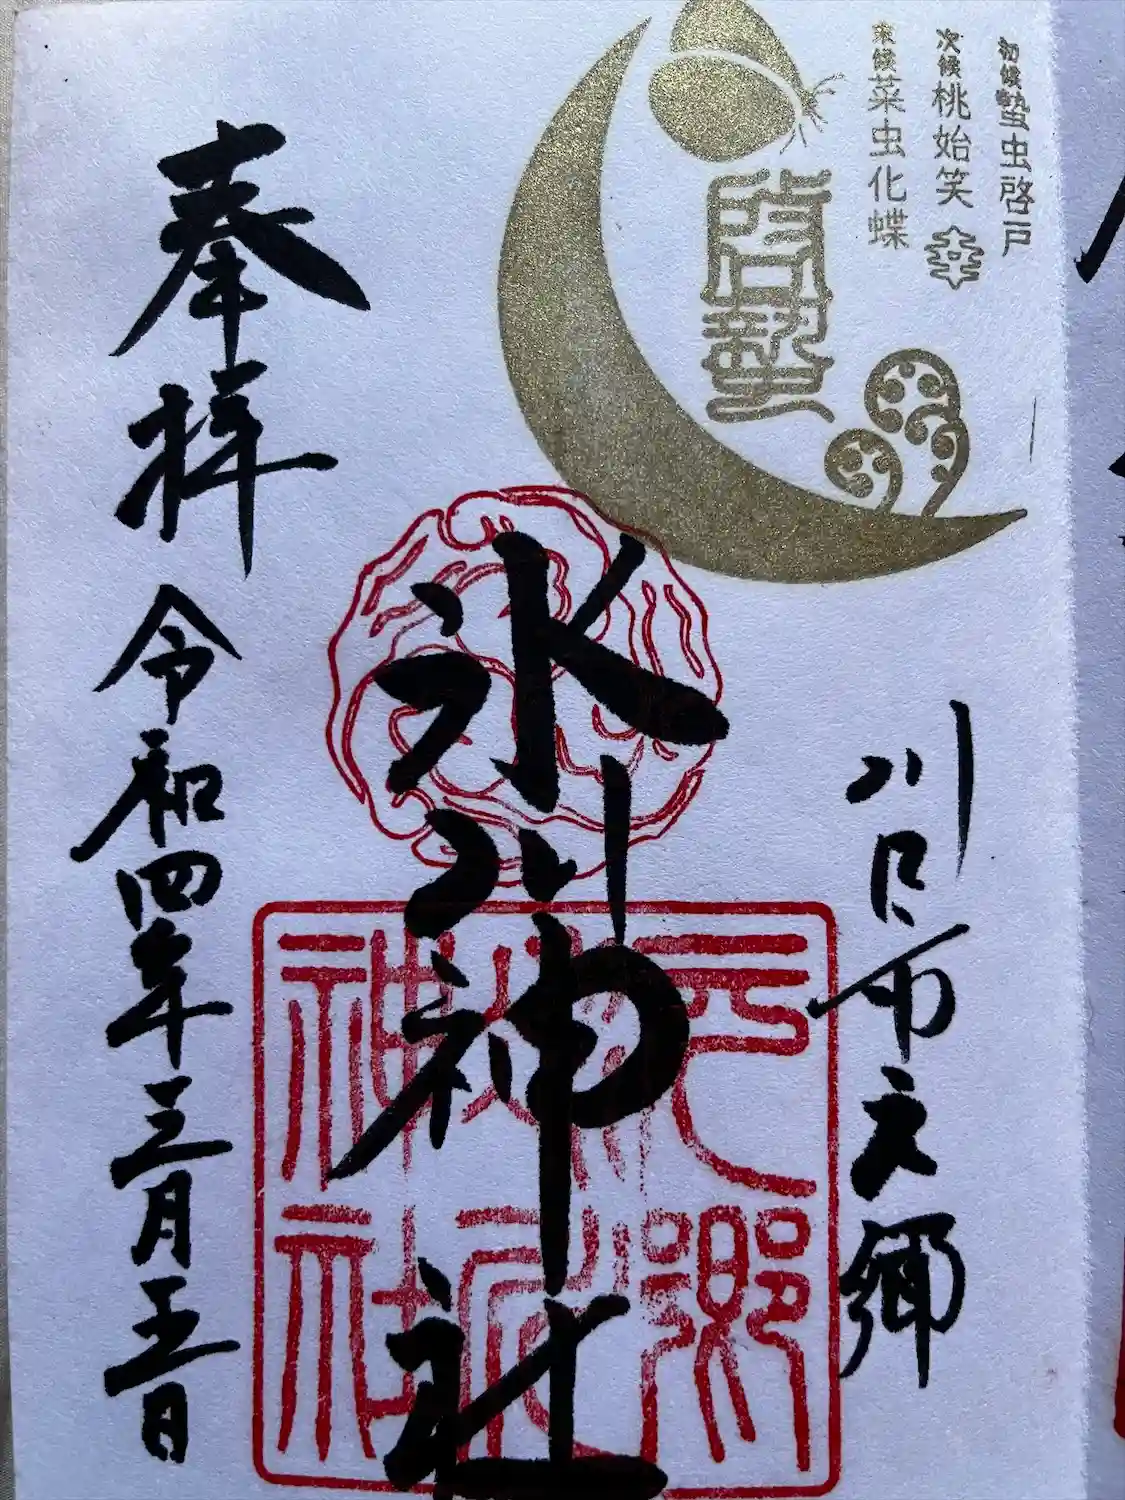 初候 蟄虫啓戸
次候 桃始笑
末候 菜虫化蝶
啓蟄
川口市元郷
氷川神社
元郷
神社
奉拝 令和四年三月五日